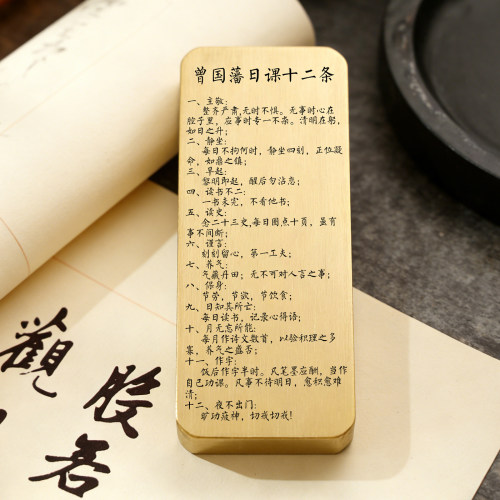 曾国藩日课十二条
一、主敬:
整齐严肃,无时不惧。无事时心在
腔子里，应事时专一不杂。清明在躬，
如日之升;
二、静坐:
每日不拘何时，静坐四刻，正位凝
命，如鼎之镇;
三、早起:
黎明即起，醒后勿沾恋;
四、读书不二:
一书未完，不看他书;
五、读史:
念二十三史,每日圈点十页，虽有
事不间断;
六、谨言:
刻刻留心，第一工夫;
七、养气:
气藏丹田；无不可对人言之事;
八、保身:
节劳，节欲，节饮食;
九、日知其所亡:
每日读书，记录心得语;
十、月无忘所能:
每月作诗文数首，以验积理之多
寡，养气之盛否;
十一、作字:
饭后作字半时。凡笔墨应酬，当作
自己功课。凡事不待明日，愈积愈难
清;
十二、夜不出门:
旷功疲神，切戒切戒!
觀